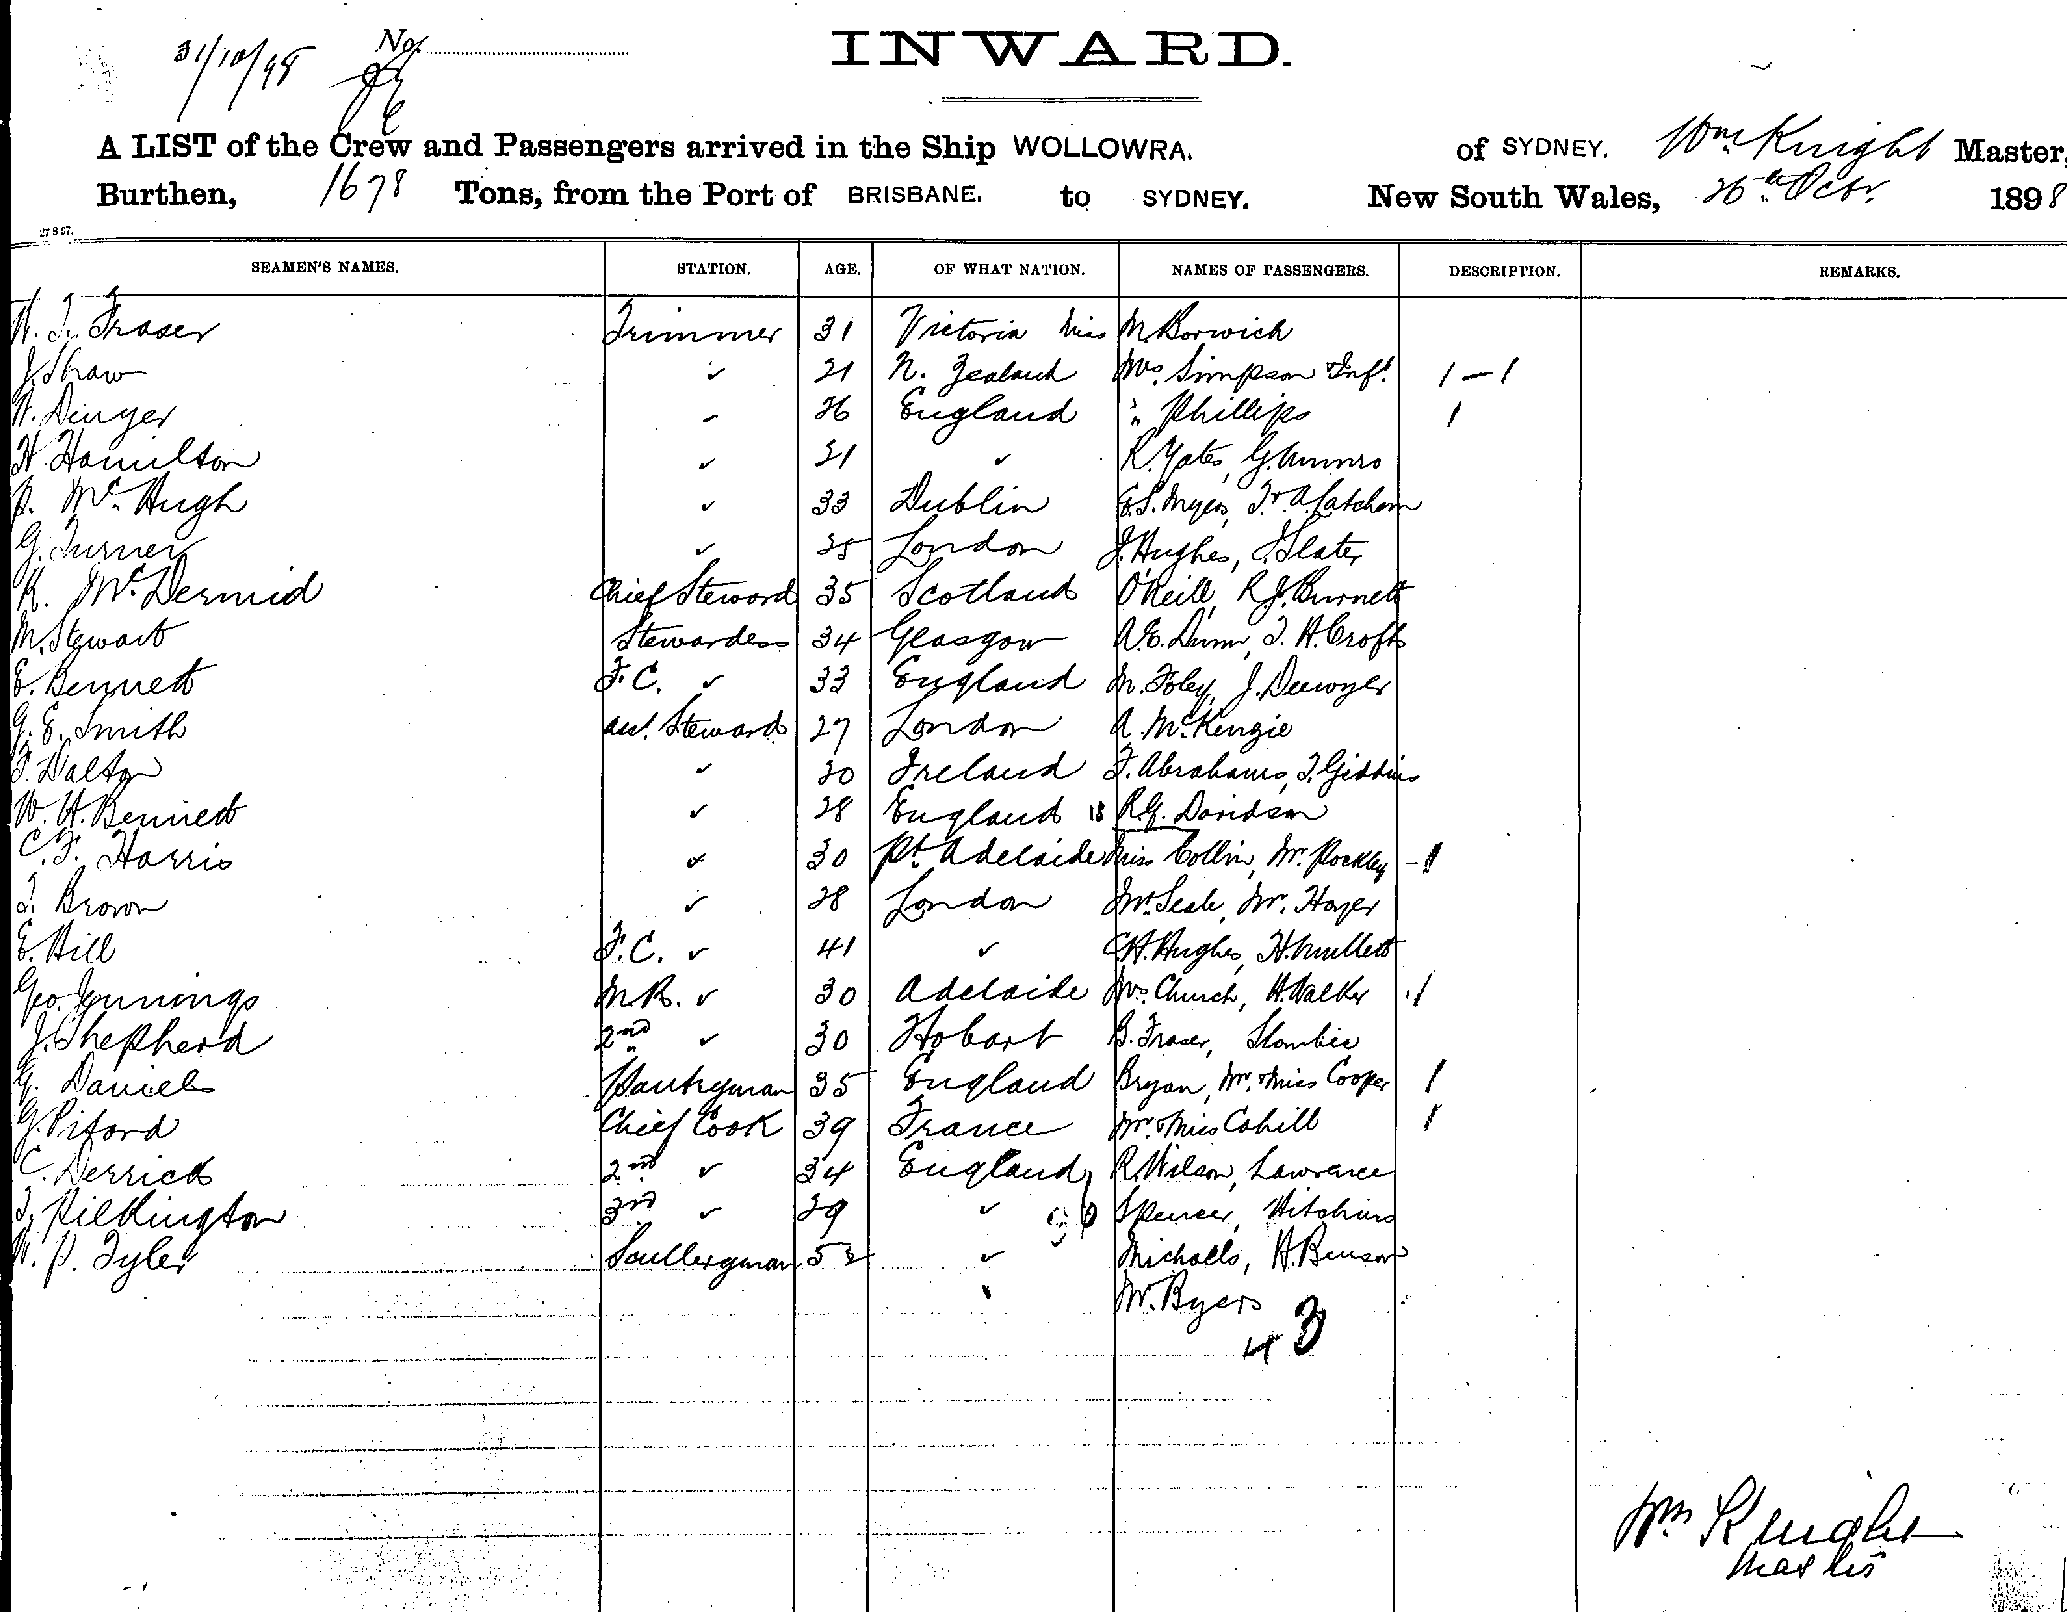 31/10/98 No.
INWARD.
A LIST of the Crew and Passengers arrived in the Ship WOLLOWRA. of SYDNEY. Wm Knight Master,
Burthen, 1678 Tons, from the Port of BRISBANE. to SYDNEY. New South Wales, 26th Octr. 1898
SEAMEN'S NAMES. STATION. AGE. OF WHAT NATION. NAMES OF PASSENGERS. DESCRIPTION. REMARKS.
Fraser Trimmer 31 Victoria Miss M. Borwick
J. Shaw ✓ 21 N. Zealand Mrs. Simpson Inft. 1 – 1
W. Dinyer ✓ 26 England " Phillips 1
H. Hamilton ✓ 21 ✓ R. Yates, G. Munro
P. McHugh ✓ 33 Dublin E.S. Myers,
G. Turner ✓ 25 London J. Hughes, J. Slater
R. McDermid Chief Steward 35 Scotland O'Neill, R.J. Burnett
M. Stewart Stewardess 34 Glasgow A.E. Dunn, T. H. Crofts
E. Bennett F.C. ✓ 33 England M. Foley, J. Deewyer
G. E. Smith asst. Steward 27 London A. McKenzie
F. Dalton ✓ 30 Ireland F. Abrahams, T. Giddins
W. H. Bennett ✓ 28 England 18 R.G. Davidson
C. F. Harris ✓ 30 Pt. Adelaide Miss Collin, Mr. Pockley – 1
T. Brown ✓ 28 London Mr. Seale, Mr. Hayer
E. Hill F.C. ✓ 41 ✓ C.H. Hughes, H. Mullett
Geo. Jennings M.R. ✓ 30 Adelaide Mrs. Church, H. Walker 1
J. Shepherd 2nd ✓ 30 Hobart G. Fraser, Slombie
G. Daniels Pantryman 35 England Bryan, Mr. & Miss Cooper 1
G. Piford Chief Cook 39 France Mr. & Miss Cahill 1
C. Derrick 2nd ✓ 34 England R. Wilson, Lawrance
T. Pilkington 3rd ✓ 29 ✓ Spencer, Hitchins
W. P. Tyler Scullergman 52 ✓ Nicholls, H. Benson
Mr. Byers
43
Wm Knight
Master